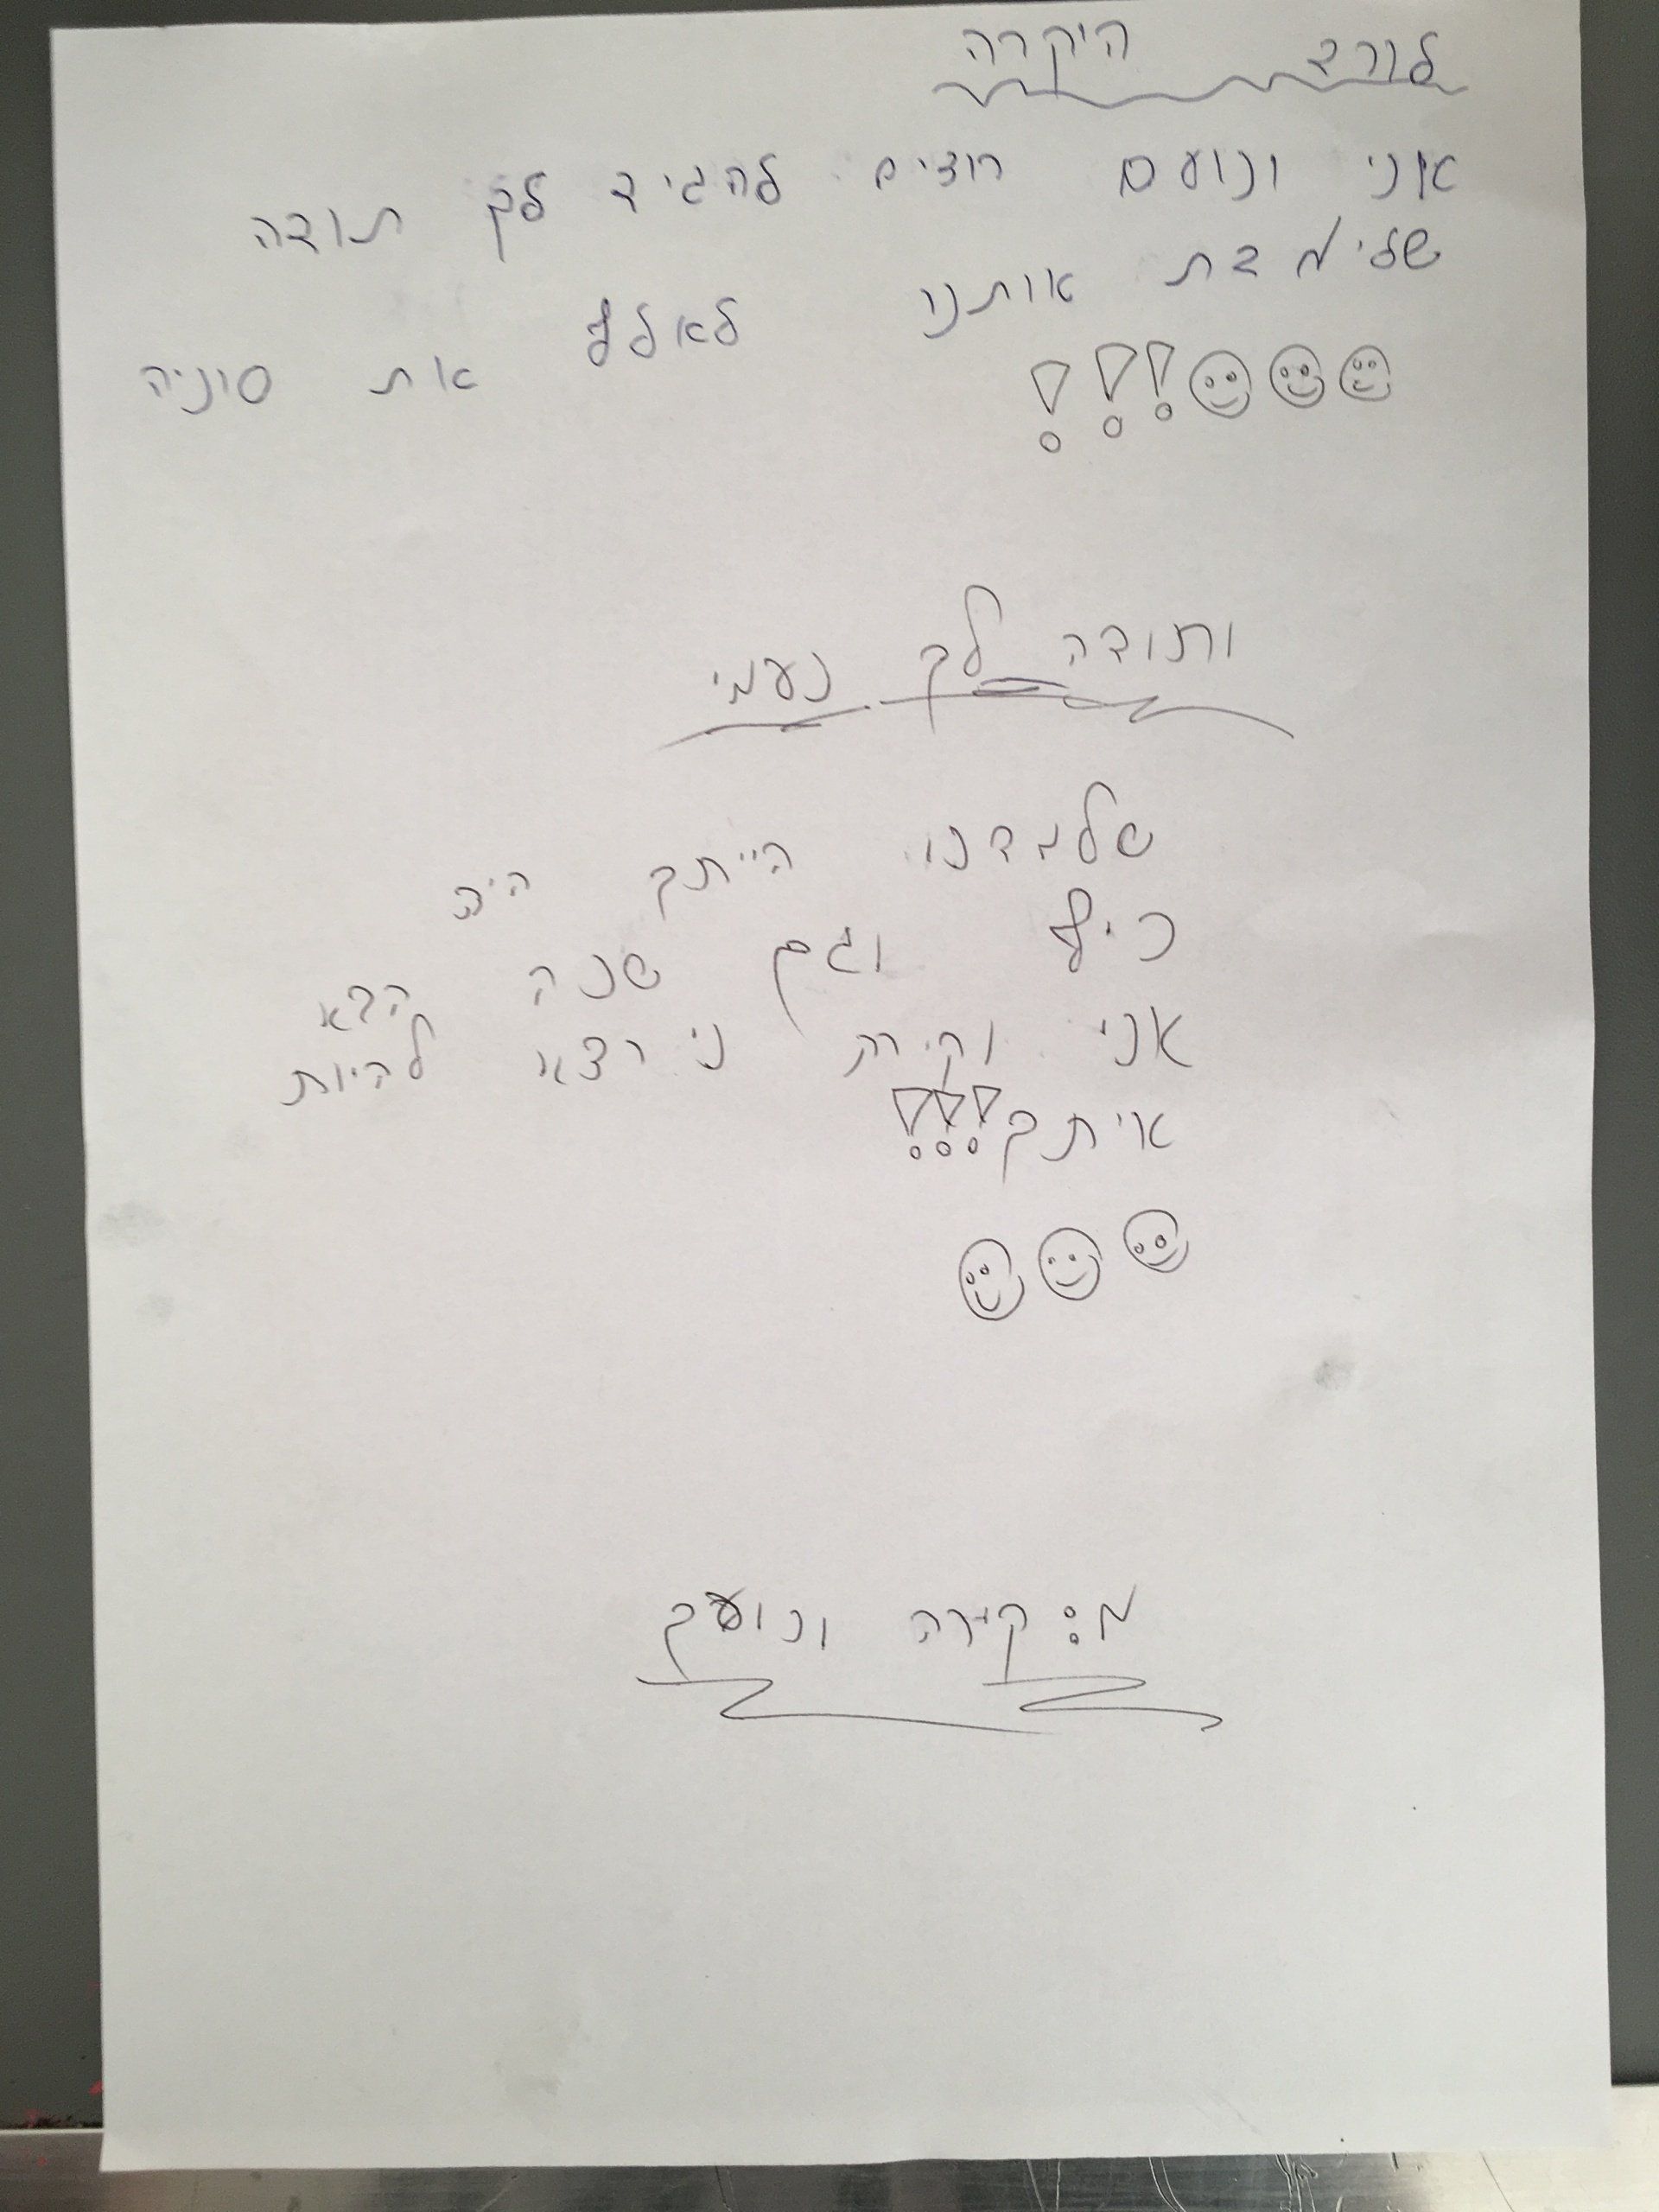 לורד היקרה
אני ונועם רוצים להגיד לך תודה
שלימדת אותנו לאלף את סוניה
!!!
ותודה לך נעמי
שלמדנו הייתך היה
כיף וגם שנה הבא
אני וקירה נירצא להיות
איתך!!!
מ: קירה ונועם